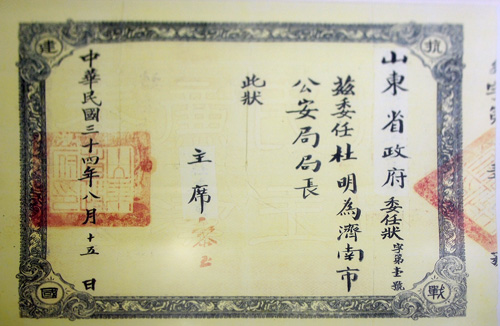 山東省政府委任狀 字第壹號
茲委任杜明為濟南市
公安局局長
此狀
主席黎玉
中華民國三十四年八月十五日
抗
戰
建
國